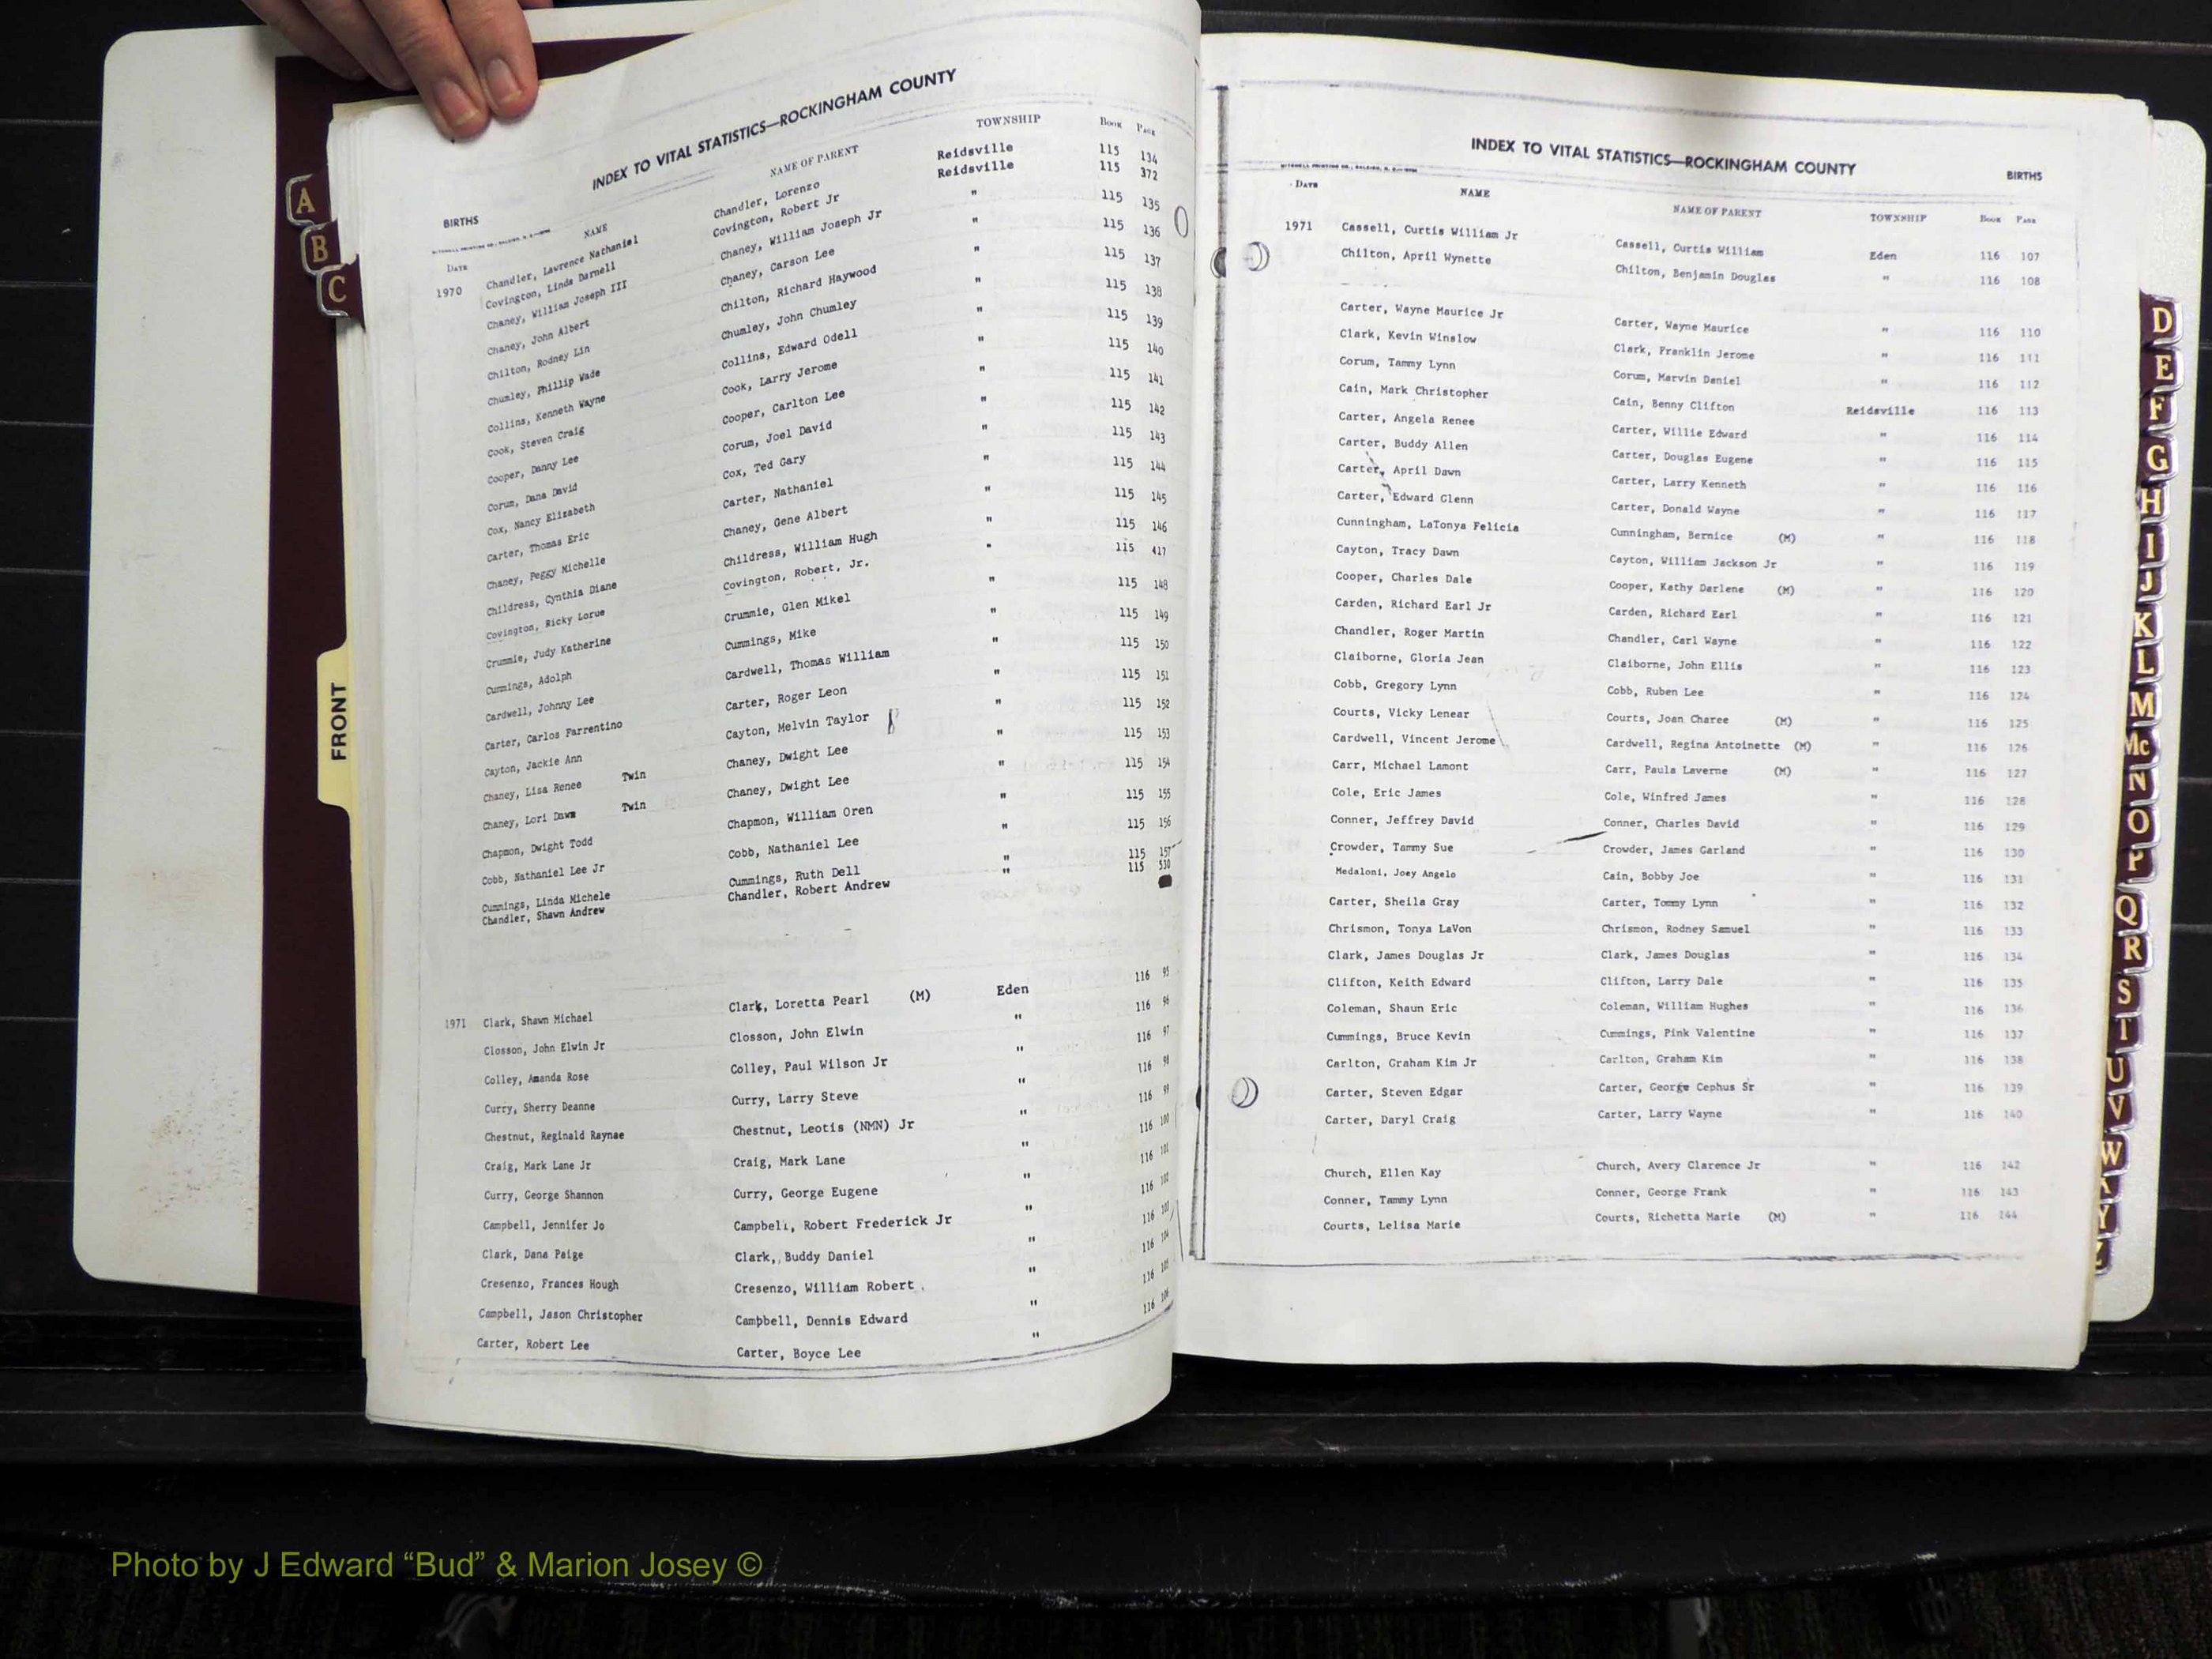 A
B
C
FRONT
INDEX TO VITAL STATISTICS—ROCKINGHAM COUNTY
BIRTHS
DATE NAME NAME OF PARENT TOWNSHIP BOOK PAGE
1970 Chandler, Lawrence Nathaniel Chandler, Lorenzo Reidsville 115 134
Covington, Linda Darnell Covington, Robert Jr Reidsville 115 372
Chaney, William Joseph III Chaney, William Joseph Jr " 115 135
Chaney, John Albert Chaney, Carson Lee " 115 136
Chilton, Rodney Lin Chilton, Richard Haywood " 115 137
Chumley, Phillip Wade Chumley, John Chumley " 115 138
Collins, Kenneth Wayne Collins, Edward Odell " 115 139
Cook, Steven Craig Cook, Larry Jerome " 115 140
Cooper, Danny Lee Cooper, Carlton Lee " 115 141
Corum, Dana David Corum, Joel David " 115 142
Cox, Nancy Elizabeth Cox, Ted Gary " 115 143
Carter, Thomas Eric Carter, Nathaniel " 115 144
Chaney, Peggy Michelle Chaney, Gene Albert " 115 145
Childress, Cynthia Diane Childress, William Hugh " 115 146
Covington, Ricky Lorue Covington, Robert, Jr. " 115 417
Crummie, Judy Katherine Crummie, Glen Mikel " 115 148
Cummings, Adolph Cummings, Mike " 115 149
Cardwell, Johnny Lee Cardwell, Thomas William " 115 150
Carter, Carlos Farrentino Carter, Roger Leon " 115 151
Cayton, Jackie Ann Cayton, Melvin Taylor " 115 152
Chaney, Lisa Renee Twin Chaney, Dwight Lee " 115 153
Chaney, Lori Dawn Twin Chaney, Dwight Lee " 115 154
Chapmon, Dwight Todd Chapmon, William Oren " 115 155
Cobb, Nathaniel Lee Jr Cobb, Nathaniel Lee " 115 156
Cummings, Linda Michele Cummings, Ruth Dell " 115 157
Chandler, Shawn Andrew Chandler, Robert Andrew " 115 530
1971 Clark, Shawn Michael Clark, Loretta Pearl (M) Eden 116 95
Closson, John Elwin Jr Closson, John Elwin " 116 96
Colley, Amanda Rose Colley, Paul Wilson Jr " 116 97
Curry, Sherry Deanne Curry, Larry Steve " 116 98
Chestnut, Reginald Raynae Chestnut, Leotis (NMN) Jr " 116 99
Craig, Mark Lane Jr Craig, Mark Lane " 116 100
Curry, George Shannon Curry, George Eugene " 116 101
Campbell, Jennifer Jo Campbell, Robert Frederick Jr " 116 102
Clark, Dana Paige Clark, Buddy Daniel " 116 103
Cresenzo, Frances Hough Cresenzo, William Robert " 116 104
Campbell, Jason Christopher Campbell, Dennis Edward " 116 105
Carter, Robert Lee Carter, Boyce Lee " 116 106
INDEX TO VITAL STATISTICS—ROCKINGHAM COUNTY
BIRTHS
DATE NAME NAME OF PARENT TOWNSHIP BOOK PAGE
1971 Cassell, Curtis William Jr Cassell, Curtis William Eden 116 107
Chilton, April Wynette Chilton, Benjamin Douglas " 116 108
Carter, Wayne Maurice Jr Carter, Wayne Maurice " 116 110
Clark, Kevin Winslow Clark, Franklin Jerome " 116 111
Corum, Tammy Lynn Corum, Marvin Daniel " 116 112
Cain, Mark Christopher Cain, Benny Clifton Reidsville 116 113
Carter, Angela Renee Carter, Willie Edward " 116 114
Carter, Buddy Allen Carter, Douglas Eugene " 116 115
Carter, April Dawn Carter, Larry Kenneth " 116 116
Carter, Edward Glenn Carter, Donald Wayne " 116 117
Cunningham, LaTonya Felicia Cunningham, Bernice (M) " 116 118
Cayton, Tracy Dawn Cayton, William Jackson Jr " 116 119
Cooper, Charles Dale Cooper, Kathy Darlene (M) " 116 120
Carden, Richard Earl Jr Carden, Richard Earl " 116 121
Chandler, Roger Martin Chandler, Carl Wayne " 116 122
Claiborne, Gloria Jean Claiborne, John Ellis " 116 123
Cobb, Gregory Lynn Cobb, Ruben Lee " 116 124
Courts, Vicky Lenear Courts, Joan Charee (M) " 116 125
Cardwell, Vincent Jerome Cardwell, Regina Antoinette (M) " 116 126
Carr, Michael Lamont Carr, Paula Laverne (M) " 116 127
Cole, Eric James Cole, Winfred James " 116 128
Conner, Jeffrey David Conner, Charles David " 116 129
Crowder, Tammy Sue Crowder, James Garland " 116 130
Medaloni, Joey Angelo Cain, Bobby Joe " 116 131
Carter, Sheila Gray Carter, Tommy Lynn " 116 132
Chrismon, Tonya LaVon Chrismon, Rodney Samuel " 116 133
Clark, James Douglas Jr Clark, James Douglas " 116 134
Clifton, Keith Edward Clifton, Larry Dale " 116 135
Coleman, Shaun Eric Coleman, William Hughes " 116 136
Cummings, Bruce Kevin Cummings, Pink Valentine " 116 137
Carlton, Graham Kim Jr Carlton, Graham Kim " 116 138
Carter, Steven Edgar Carter, George Cephus Sr " 116 139
Carter, Daryl Craig Carter, Larry Wayne " 116 140
Church, Ellen Kay Church, Avery Clarence Jr " 116 142
Conner, Tammy Lynn Conner, George Frank " 116 143
Courts, Lelisa Marie Courts, Richetta Marie (M) " 116 144
D
E
F
G
H
I
J
K
L
M
Mc
N
O
P
Q
R
S
T
U
V
W
Y
Z
Photo by J Edward “Bud” & Marion Josey ©